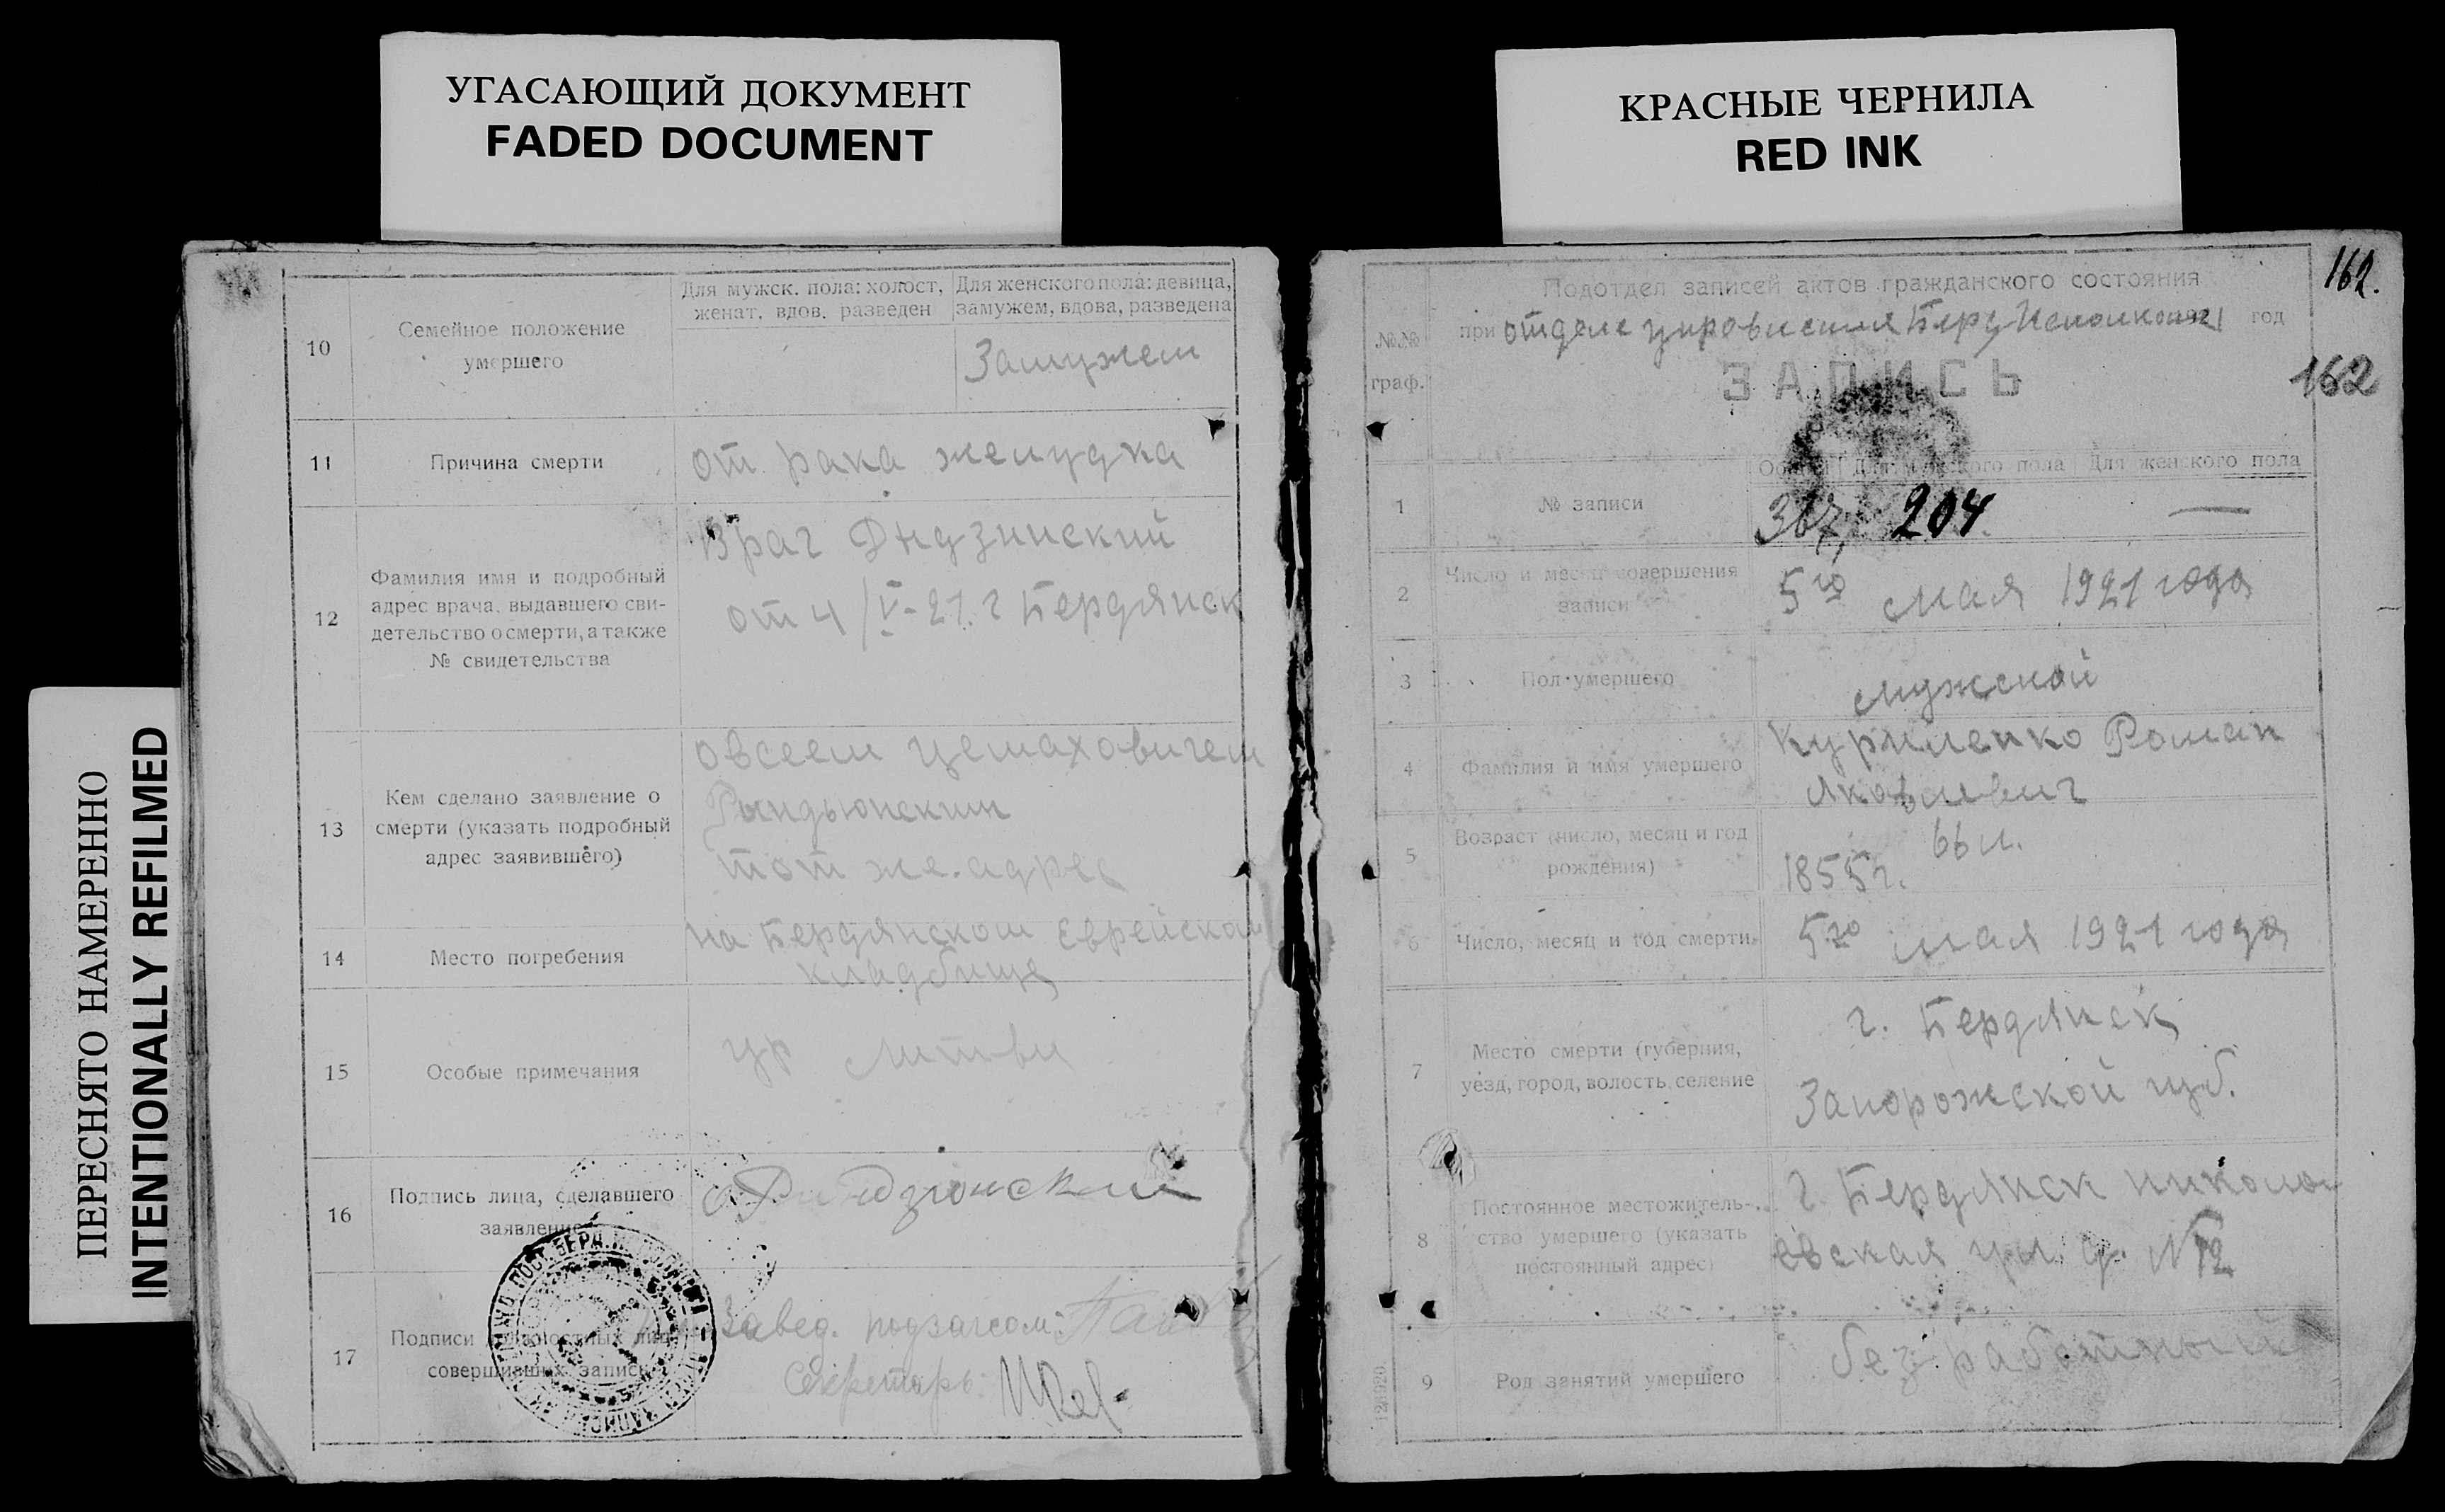 УГАСАЮЩИЙ ДОКУМЕНТ
FADED DOCUMENT
КРАСНЫЕ ЧЕРНИЛА
RED INK
ПЕРЕСНЯТО НАМЕРЕННО
INTENTIONALLY REFILMED
Для мужск. пола: холост,
женат, вдов. разведен
Для женского пола: девица,
замужем, вдова, разведена
10
Семейное положение
умершего
Замужем
11
Причина смерти
от рака желудка
12
Фамилия имя и подробный
адрес врача, выдавшего сви-
детельство о смерти, а также
№ свидетельства
Врач
от 4/V-21. г Бердянск
13
Кем сделано заявление о
смерти (указать подробный
адрес заявившего)
овсеем цемаховичем
тот же. адрес
14
Место погребения
на Бердянском Еврейском
кладбище
15
Особые примечания
ур Литвы
16
Подпись лица, сделавшего
заявление
17
Подписи должностных лиц
совершивших запись
Завед. подзагсом:
Секретарь:
162.
162
№№
граф.
Подотдел записей актов гражданского состояния
при отделе управления Берд Исполкома 1921 год
ЗАПИСЬ
Общий
Для мужского пола
Для женского пола
1
№ записи
367,
204
—
2
Число и месяц совершения
записи
5го мая 1921 года
3
Пол умершего
мужской
4
Фамилия и имя умершего
Курмленко Роман
Яковлевич
5
Возраст (число, месяц и год
рождения)
66 л.
1855г.
6
Число, месяц и год смерти.
5го мая 1921 года
7
Место смерти (губерния,
уезд, город, волость, селение
г. Бердянск
Запорожской губ.
8
Постоянное местожитель-
ство умершего (указать
постоянный адрес)
г. Бердянск Никола
евская ул. д. №12
9
Род занятий умершего
безработный